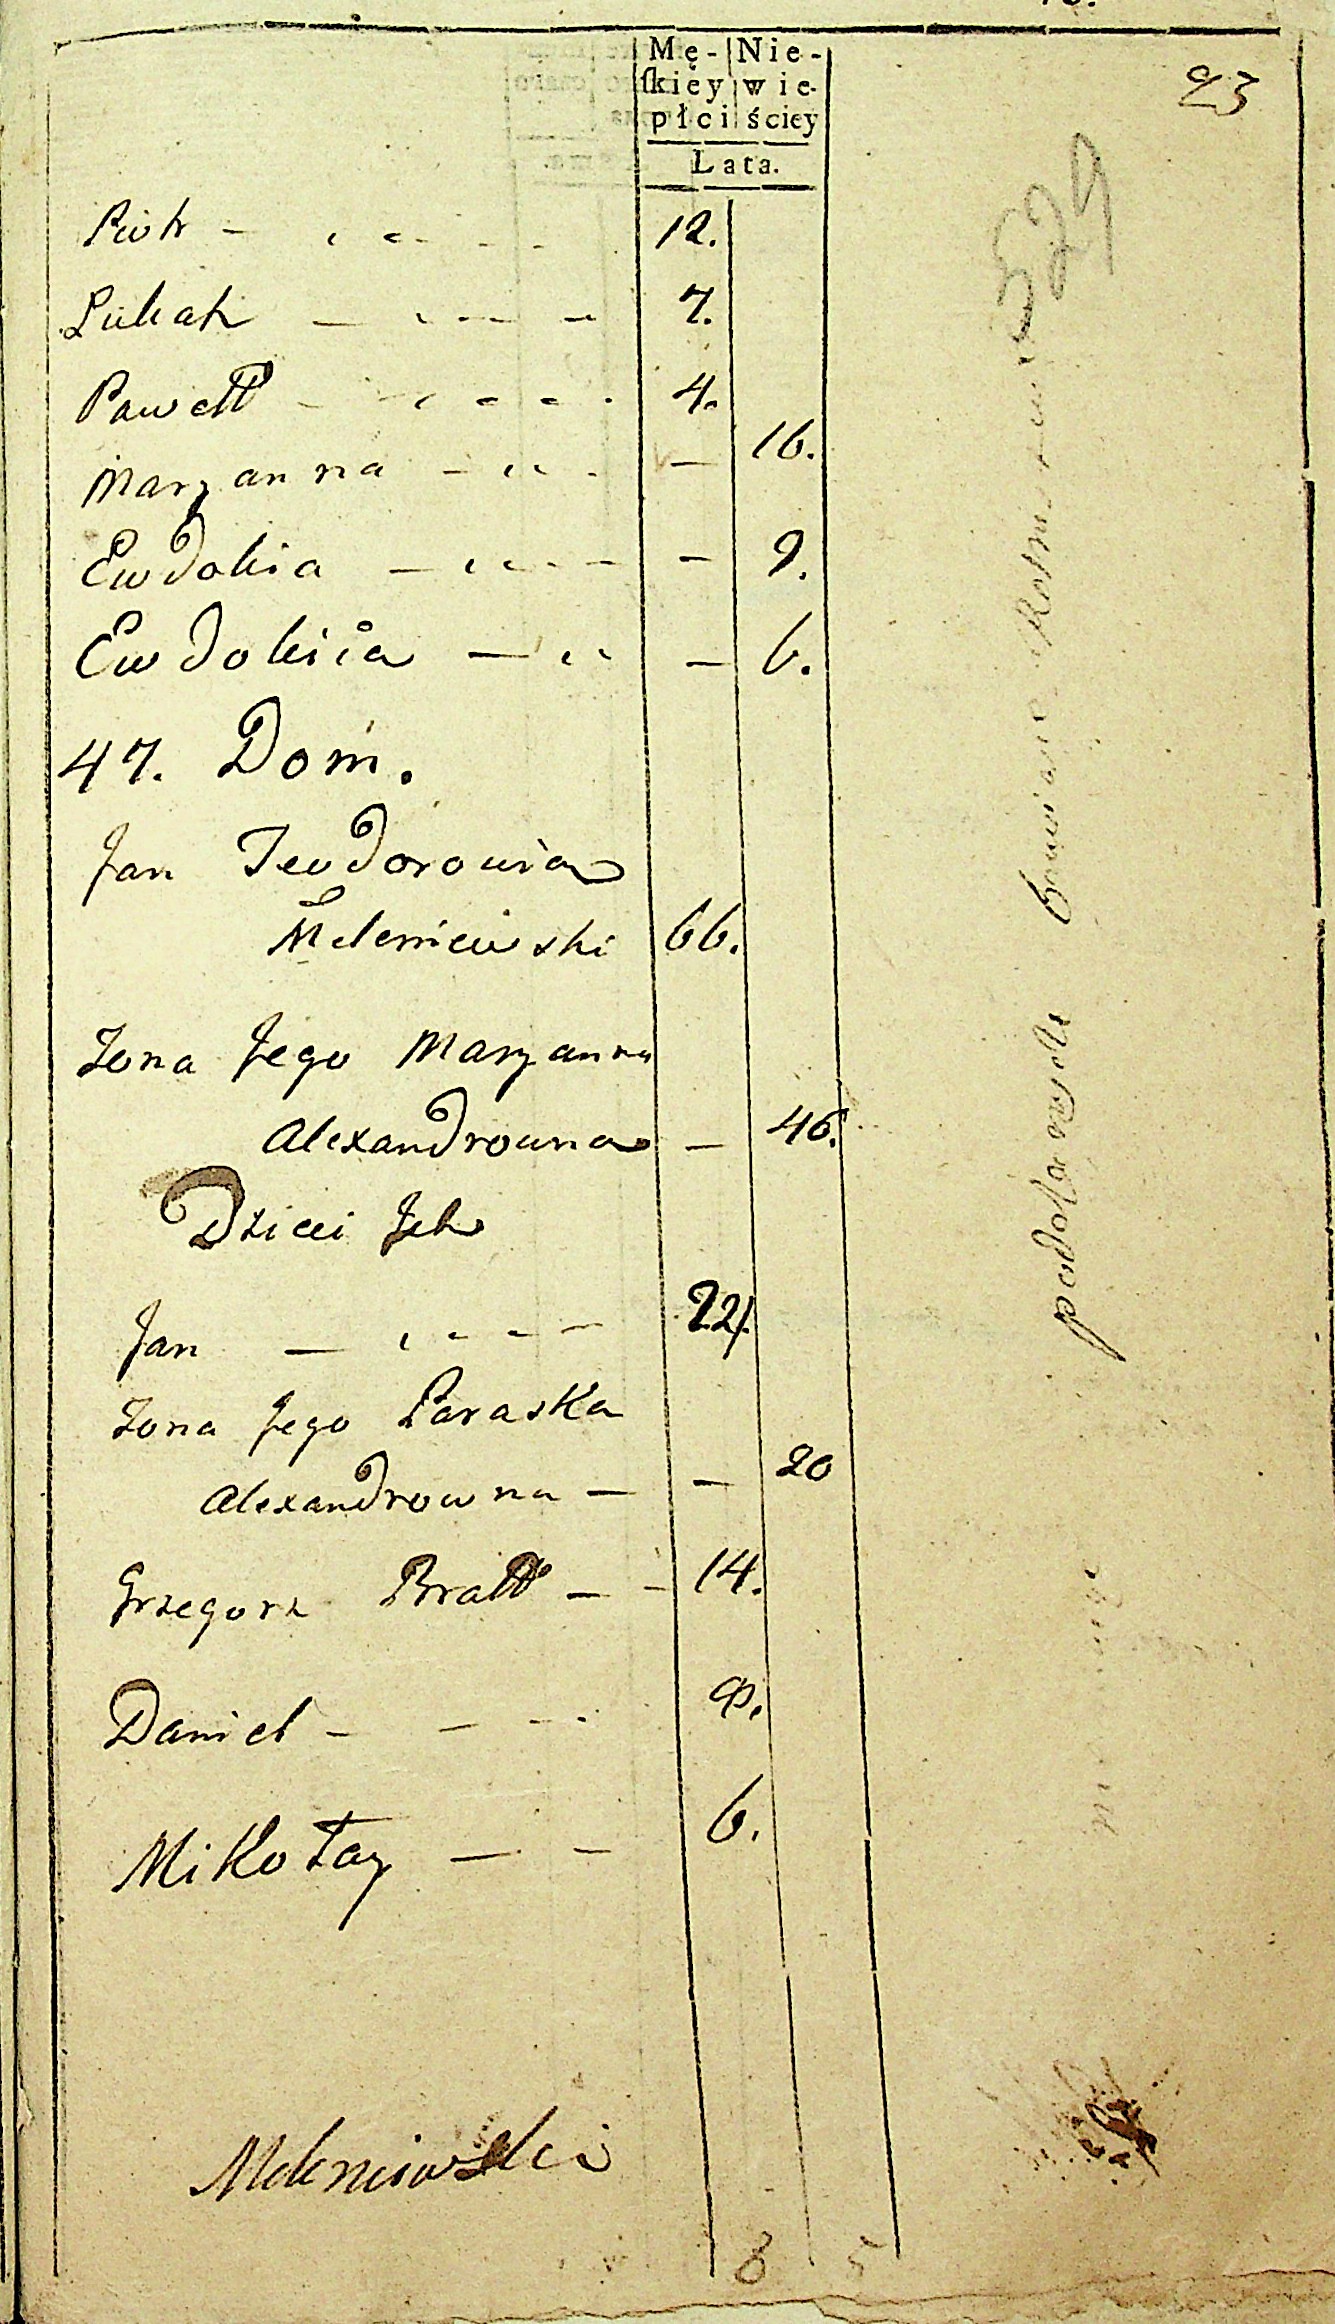 23
529
Mę- Nie-
ſkiey wie-
płci ściey
Lata.
Piotr - - - - - 12.
Lukasz - - - - - 7.
Pawełł - - - - - 4.
Maryanna - - - - - 16.
Ewdokia - - - - - 9.
Ewdokiia - - - - 6.
47. Dom.
Jan Teodorowicz
Meleniewski 66.
Zona Jego Maryanna
Alexandrowna - 46.
Dzieci Jch
Jan - - - - - 22.
Zona Jego Paraska
Alexandrowna - - 20
Grzegorz Bratt - - 14.
Daniel - - - - 9.
Mikołay - - 6.
Meleniewski
8 5